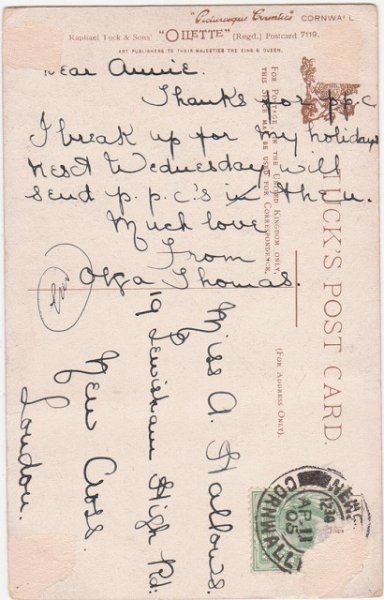 "Picturesque Counties" CORNWALL
Raphael Tuck & Sons' "OILETTE" [Regd.] Postcard 7119.
ART PUBLISHERS TO THEIR MAJESTIES THE KING & QUEEN.
Dear Annie.
Thanks for p.p.c
I break up for my holidays
next Wednesday will
send p.p.c's in then.
Much love
From
Olga Thomas.
FOR POSTAGE IN THE UNITED KINGDOM ONLY,
THIS SPACE MAY BE USED FOR CORRESPONDENCE.
TUCK'S POST CARD.
(FOR ADDRESS ONLY).
Miss A. Hallows.
19 Lewisham High Rd:
New Cross.
London.
CORNWALL
AP 11
05